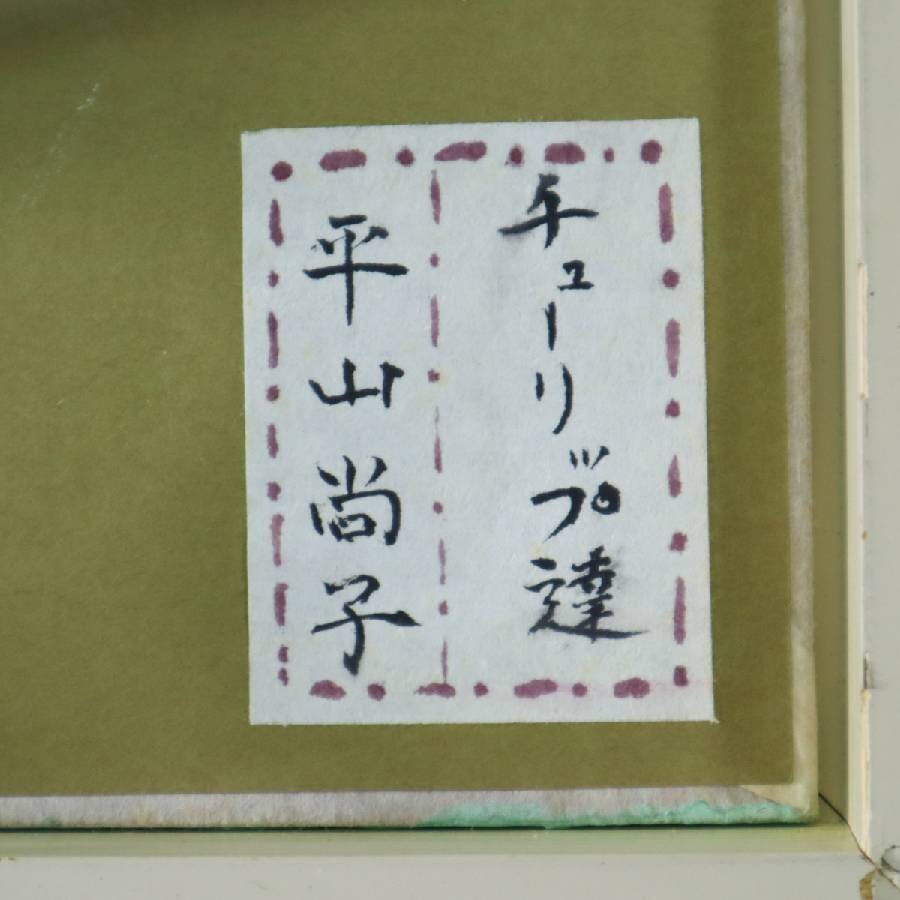 チューリップ達
平山尚子